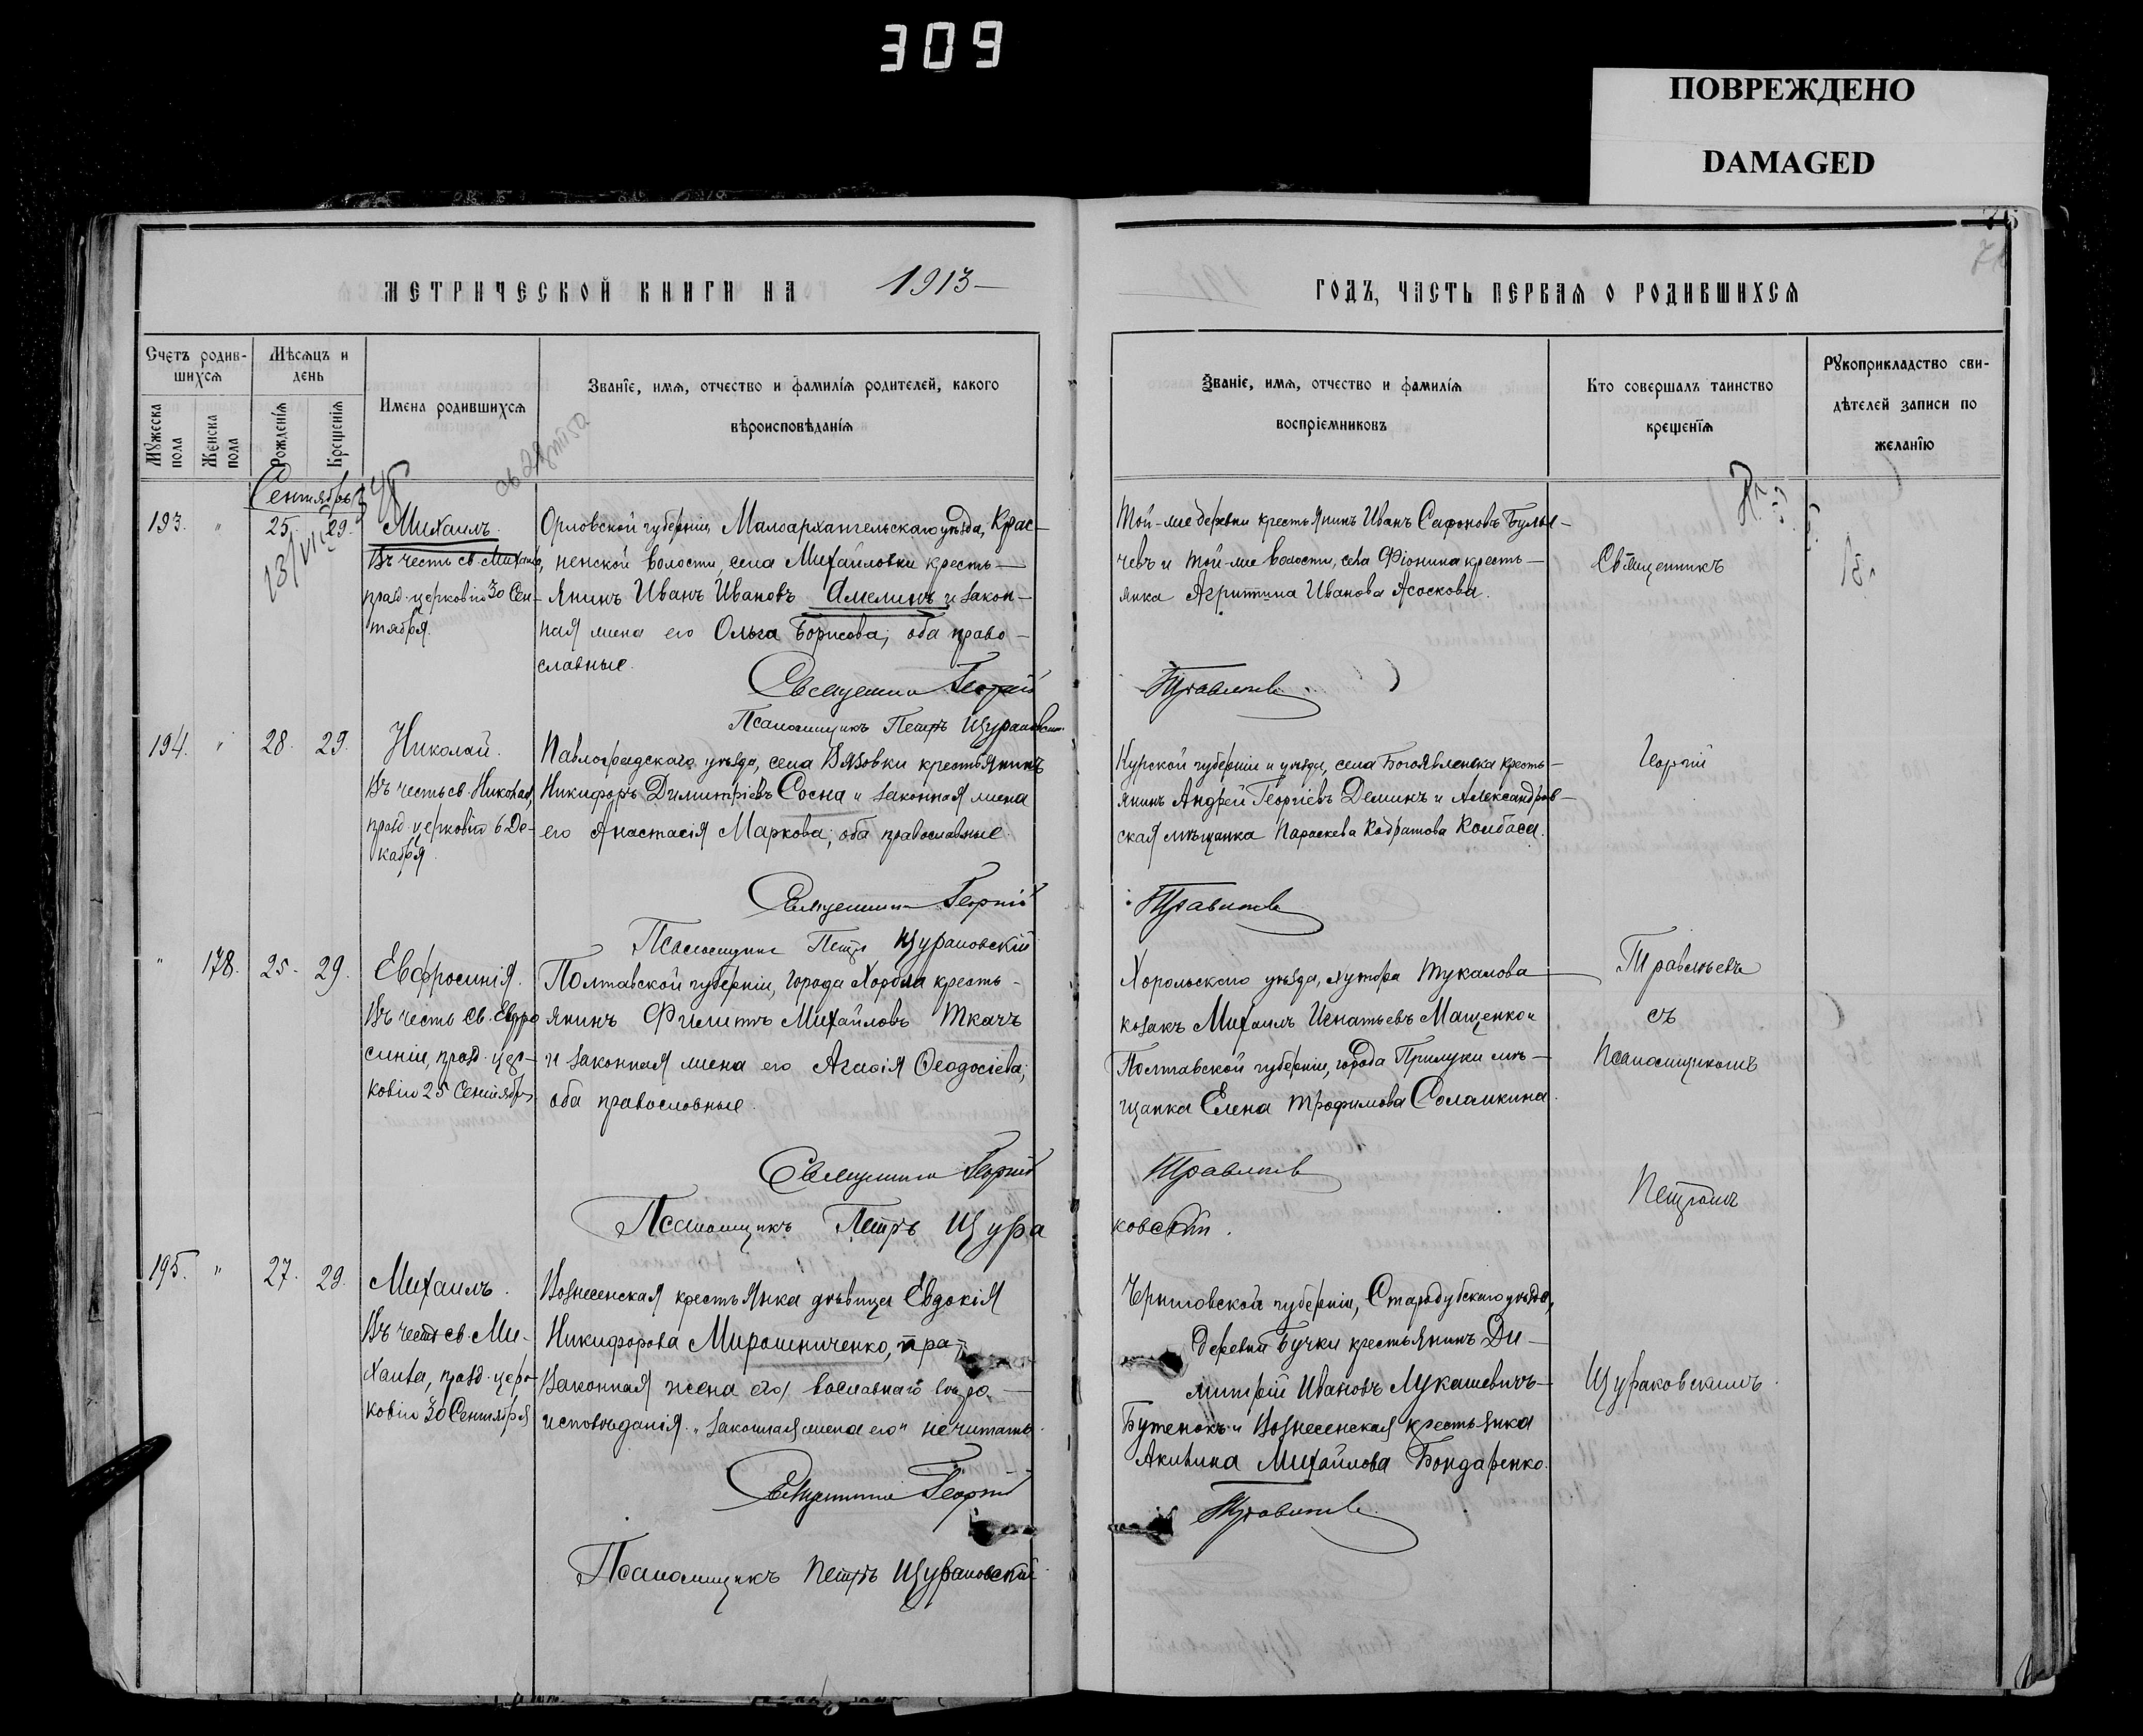 309
ПОВРЕЖДЕНО
DAMAGED
МЕТРИЧЕСКОЙ КНИГИ НА 1913
ГОДЪ, ЧАСТЬ ПЕРВАЯ О РОДИВШИХСЯ
Счетъ родив-
шихся
Мужеска пола
Женска пола
Мѣсяцъ и
день
Рожденія
Крещенія
Имена родившихся
Званіе, имя, отчество и фамилія родителей, какого
вѣроисповѣданія
Званіе, имя, отчество и фамилія
воспріемниковъ
Кто совершалъ таинство
крещенія
Рукоприкладство сви-
дѣтелей записи по
желанію
Сентябрь
193. " 25. 29.
Михаилъ.
Въ честь св. Михаила,
празд. церковію 30 Сен-
тября.
Орловской губерніи, Малоархангельскаго уѣзда, Крас-
ненской волости, села Михайловки кресть-
янинъ Иванъ Ивановъ Амелинъ и закон-
ная жена его Ольга Борисова; оба право-
славные.
Священникъ Георгій
Травлѣевъ
Псаломщикъ Петръ Щураковскій
Той-же деревни крестьянинъ Иванъ Сафоновъ
чевъ и той-же волости, села Фіонина кресть-
янка Агриппина Иванова Асоскова.
Священникъ
194. " 28. 29.
Николай.
Въ честь св. Николая,
празд. церковію 6 Де-
кабря.
Павлоградскаго уѣзда, села Вязовки крестьянинъ
Никифоръ Димитріевъ Сосна и законная жена
его Анастасія Маркова; оба православные.
Священникъ Георгій
Травлѣевъ
Псаломщикъ Петръ Щураковскій
Курской губерніи и уѣзда, села Богоявленска кресть-
янинъ Андрей Георгіевъ Деминъ и Александров-
ская мѣщанка Параскева Кодратова Колбаса.
Георгій
" 178. 25. 29.
Евфросинія.
Въ честь св. Евфро
синіи, празд. цер-
ковію 25 Сентября
Полтавской губерніи, города Хорола кресть-
янинъ Филиппъ Михайловъ Ткачъ
и законная жена его Агафія Ѳеодосіева;
оба православные.
Священникъ Георгій
Травлѣевъ
Псаломщикъ Петръ Щура
ковскій.
Хорольскаго уѣзда, хутора Тукалова
козакъ Михаилъ Игнатьевъ Мащенко и
Полтавской губерніи, города Прилуки мѣ-
щанка Елена Трофимова Соламкина.
Травлѣевъ
съ
псаломщикомъ
Петромъ
195. " 27. 29.
Михаилъ.
Въ честь св. Ми-
хаила, празд. цер-
ковію 30 Сентября
Вознесенская крестьянка дѣвица Евдокія
Никифорова Мирошниченко, пра-
законная жена его, вославнаго вѣро-
исповѣданія. "законная жена его" не читать.
Священникъ Георгій
Травлѣевъ
Псаломщикъ Петръ Щураковскій
Черниговской губерніи, Стародубскаго уѣзда,
деревни Бучки крестьянинъ Ди-
митрій Ивановъ Лукашевичъ-
Бутенокъ и Вознесенская крестьянка
Акилина Михайлова Бондаренко.
Щураковскимъ